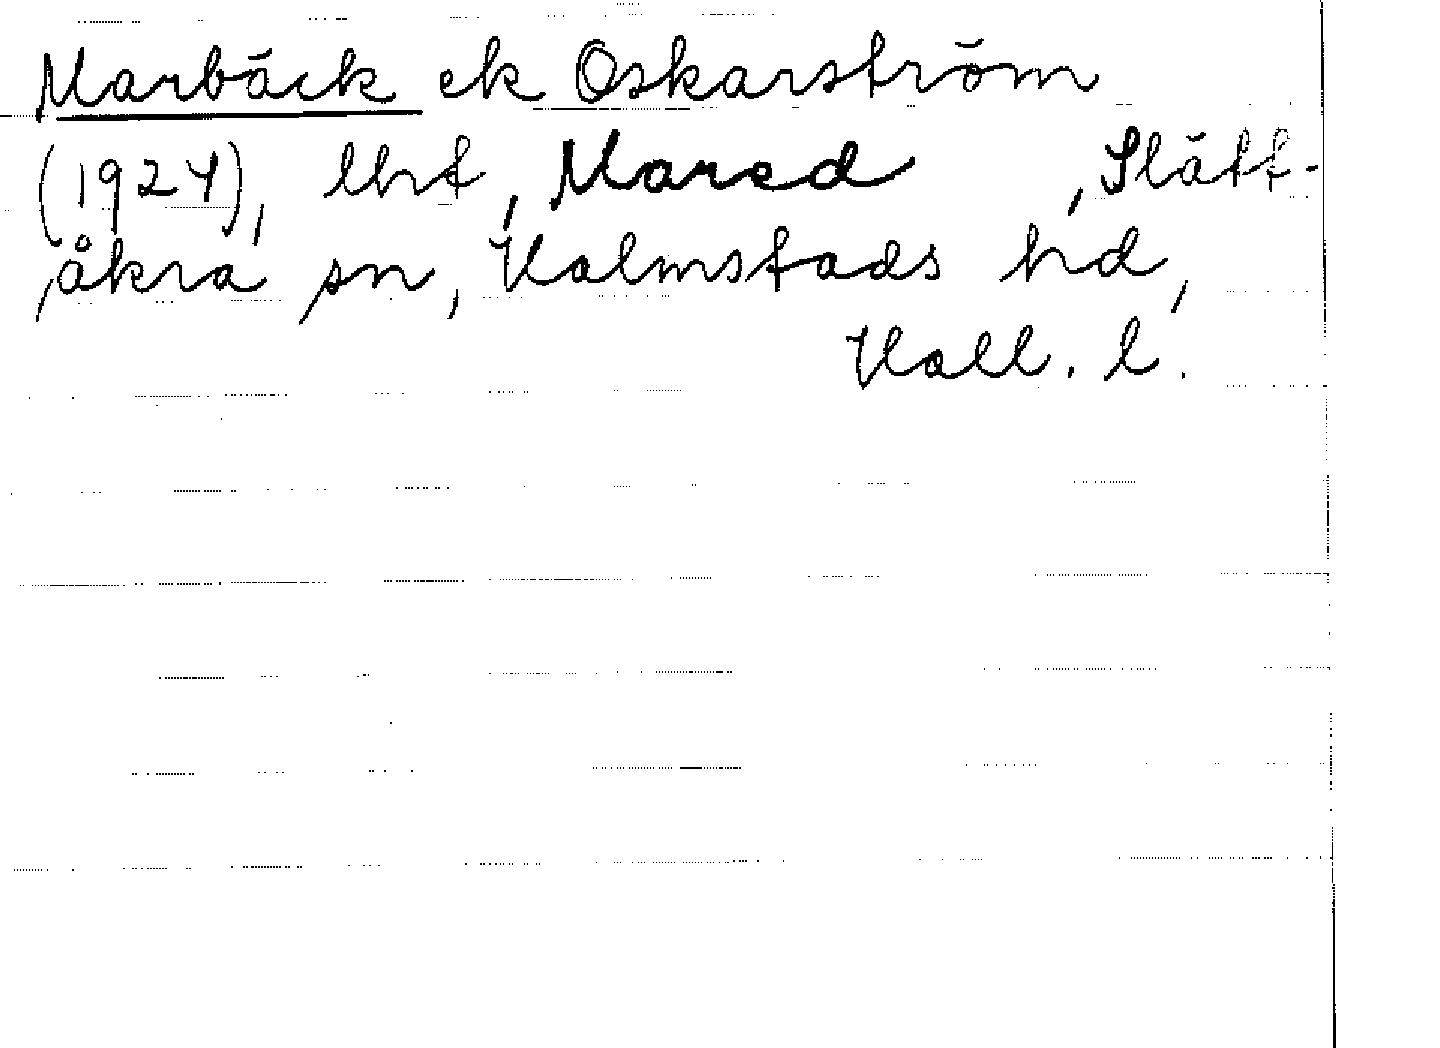 Marbäck ek Oskarström
(1924), lht, Mared, Slätt-
åkra sn, Halmstads hd,
Hall. l.